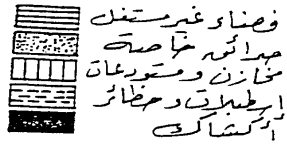 فضاء غير مستغل
حدائق خاصة
مخازن ومستودعات
إسطبلات وحظائر
أكشاك